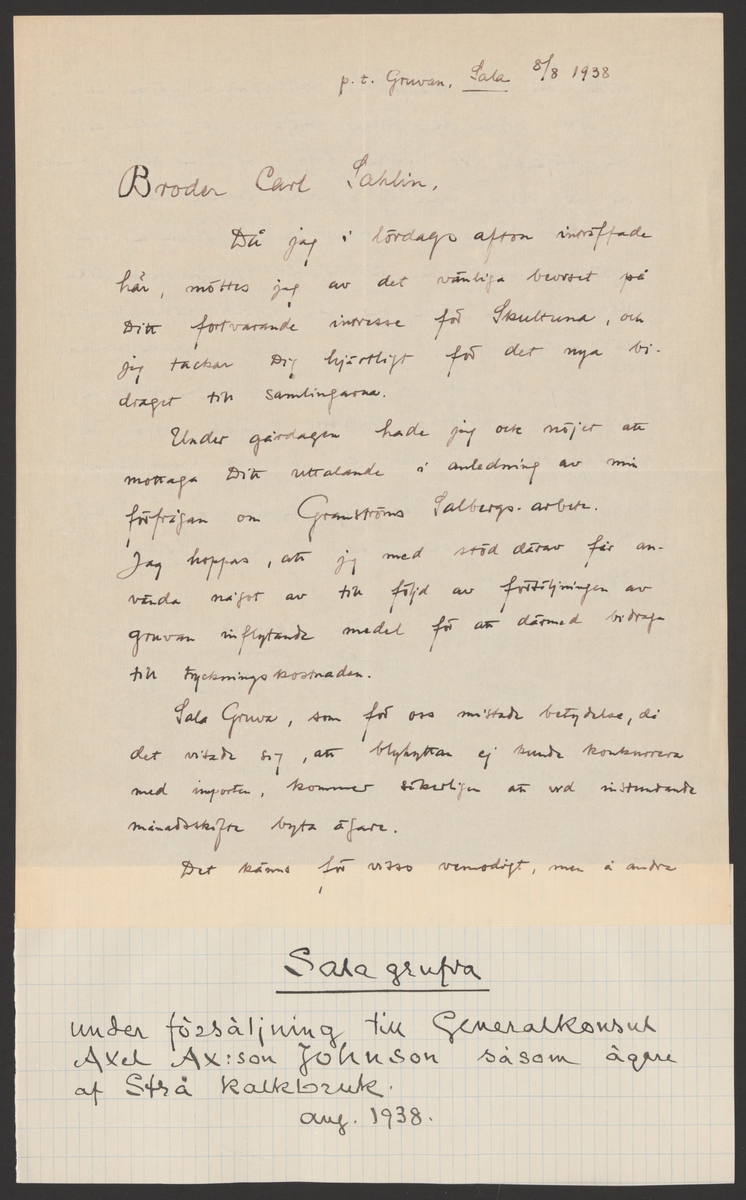 p. t. Gruvan, Sala 8/8 1938
Broder Carl Sahlin,
Då jag i lördags afton inträffade
här, möttes jag av det vänliga beviset på
Ditt fortvarande intresse för Skultuna, och
jag tackar Dig hjärtligt för det nya bi-
draget till samlingarna.
Under gårdagen hade jag ock nöjet att
mottaga Ditt uttalande i anledning av min
förfrågan om Granströms Salbergs-arbete.
Jag hoppas, att jag med stöd därav får an-
vända något av till följd av försäljningen av
gruvan inflytande medel för att därmed bidraga
till tryckningskostnaden.
Sala Gruva, som för oss mistade betydelse, då
det visade sig, att blyhyttan ej kunde konkurrera
med importen, kommer säkerligen att vid instundande
månadsskifte byta ägare.
Det känns för visso vemodigt, men å andra
Sala grufva
under försäljning till Generalkonsul
Axel Ax:son Johnson såsom ägare
af Strå Kalkbruk.
aug. 1938.